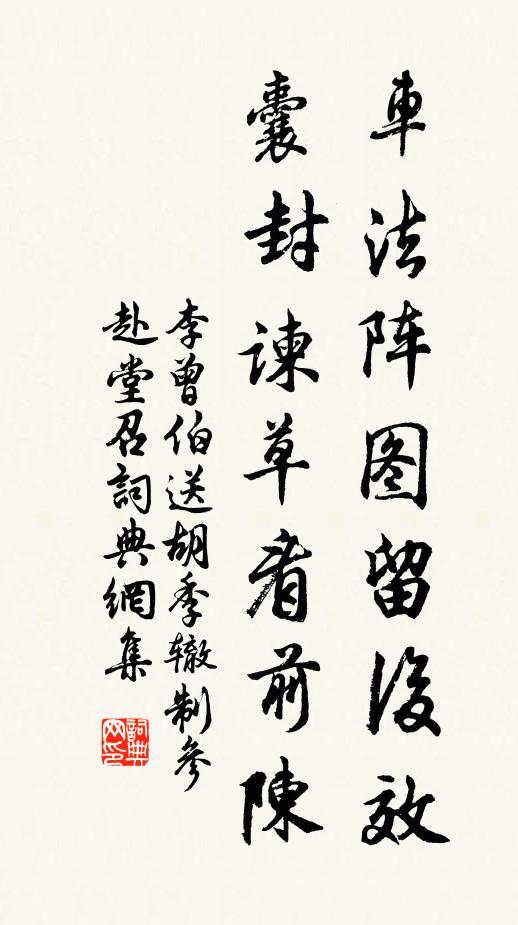 車法阵图留後效
囊封谏草看前陳
李曾伯送胡季辙制參
赴堂召詞典網集
詞典网印